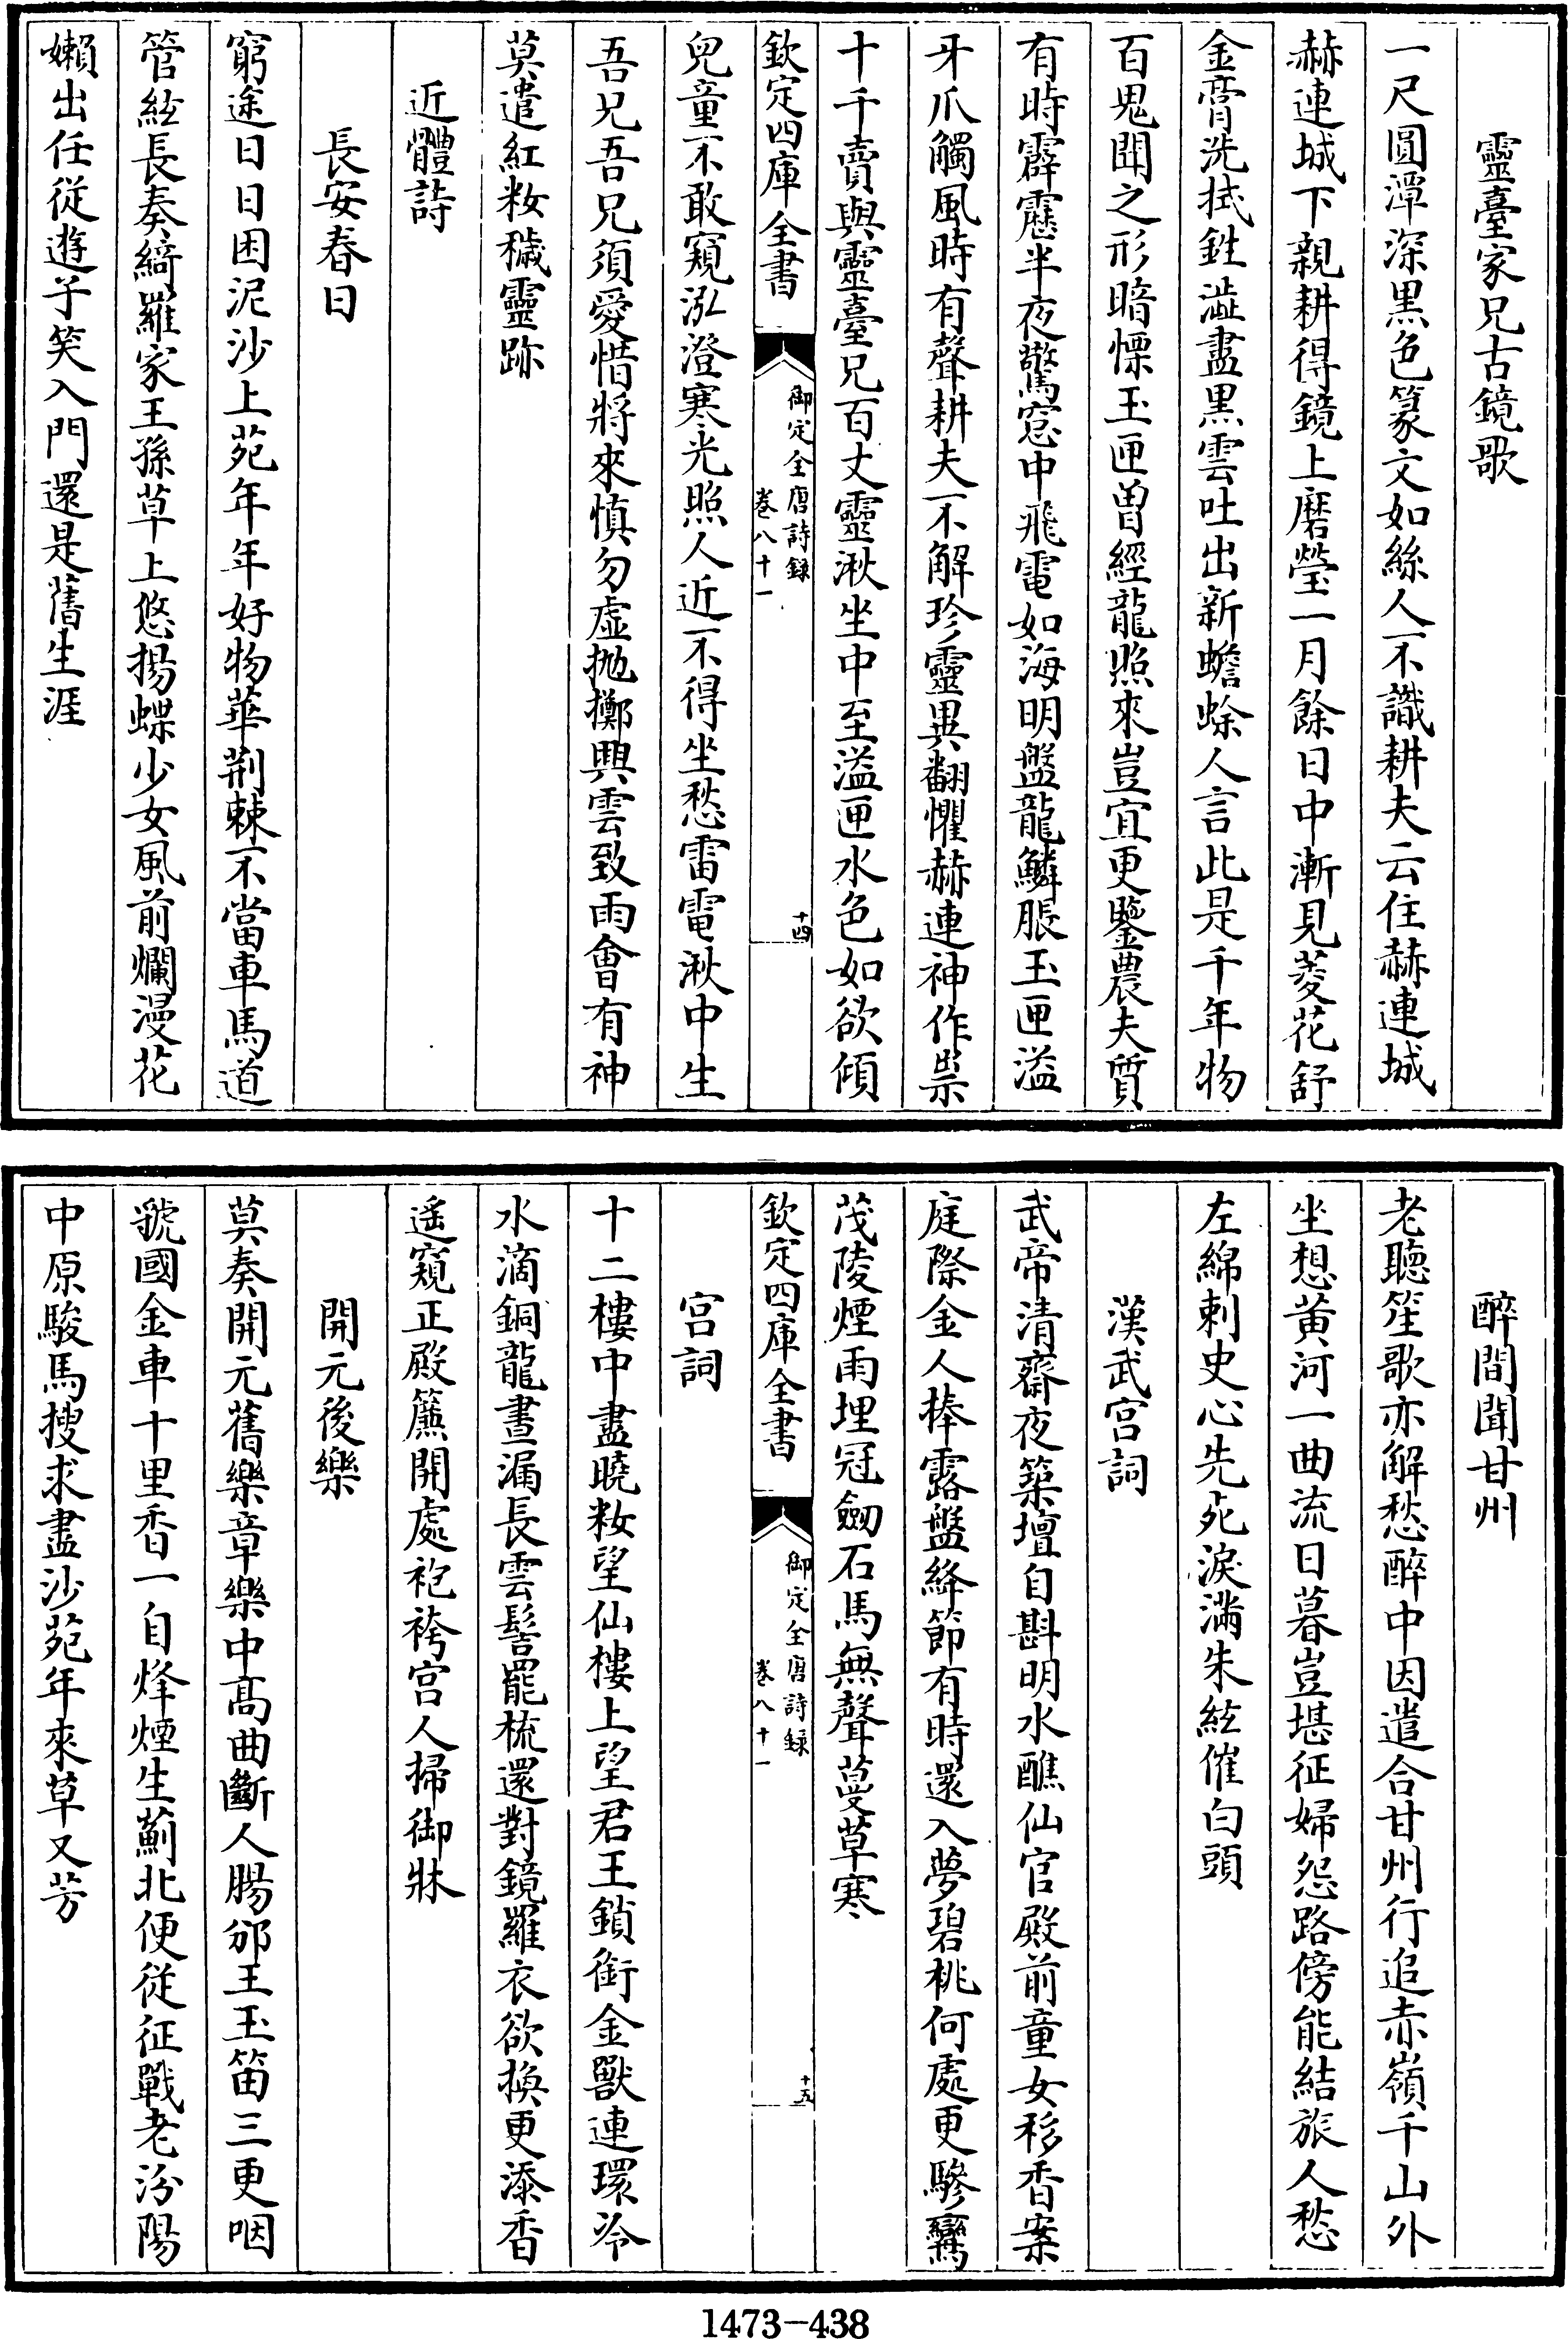 靈臺家兄古鏡歌
一尺圓潭深黒色篆文如絲人不識耕夫云住赫連城
赫連城下親耕得鏡上磨瑩一月餘日中漸見菱花舒
金膏洗拭鉎澁盡黒雲吐出新蟾蜍人言此是千年物
百鬼聞之形暗慄玉匣曽經龍照來豈宜更鑒農夫質
有時霹靂半夜驚窓中飛電如海明盤龍鱗脹玉匣溢
牙爪觸風時有聲耕夫不解珍靈異翻懼赫連神作祟
十千賣與靈臺兄百丈靈湫坐中至溢匣水色如欲傾
欽定四庫全書
御定全唐詩録
卷八十一
十四
兒童不敢窺泓澄寒光照人近不得坐愁雷電湫中生
吾兄吾兄須愛惜將來慎勿虚抛擲興雲致雨會有神
莫遣紅粧穢靈跡
近體詩
長安春日
窮途日日困泥沙上苑年年好物華荆棘不當車馬道
管絃長奏綺羅家王孫草上悠揚蝶少女風前爛漫花
嬾出任從遊子笑入門還是舊生涯
醉間聞甘州
老聽笙歌亦解愁醉中因遣合甘州行追赤嶺千山外
坐想黄河一曲流日暮豈堪征婦怨路傍能結旅人愁
左綿刺史心先死淚滿朱絃催白頭
漢武宫詞
武帝清齋夜築壇自斟明水醮仙官殿前童女移香案
庭際金人捧露盤絳節有時還入夢碧桃何處更驂鸞
茂陵煙雨埋冠劒石馬無聲蔓草寒
欽定四庫全書
御定全唐詩録
卷八十一
十五
宫詞
十二樓中盡曉粧望仙樓上望君王鎖銜金獸連環冷
水滴銅龍晝漏長雲髻罷梳還對鏡羅衣欲換更添香
遥窺正殿簾開處袍袴宫人掃御牀
開元後樂
莫奏開元舊樂章樂中髙曲斷人腸邠王玉笛三更咽
虢國金車十里香一自烽煙生薊北便從征戰老汾陽
中原駿馬搜求盡沙苑年來草又芳
1473-438